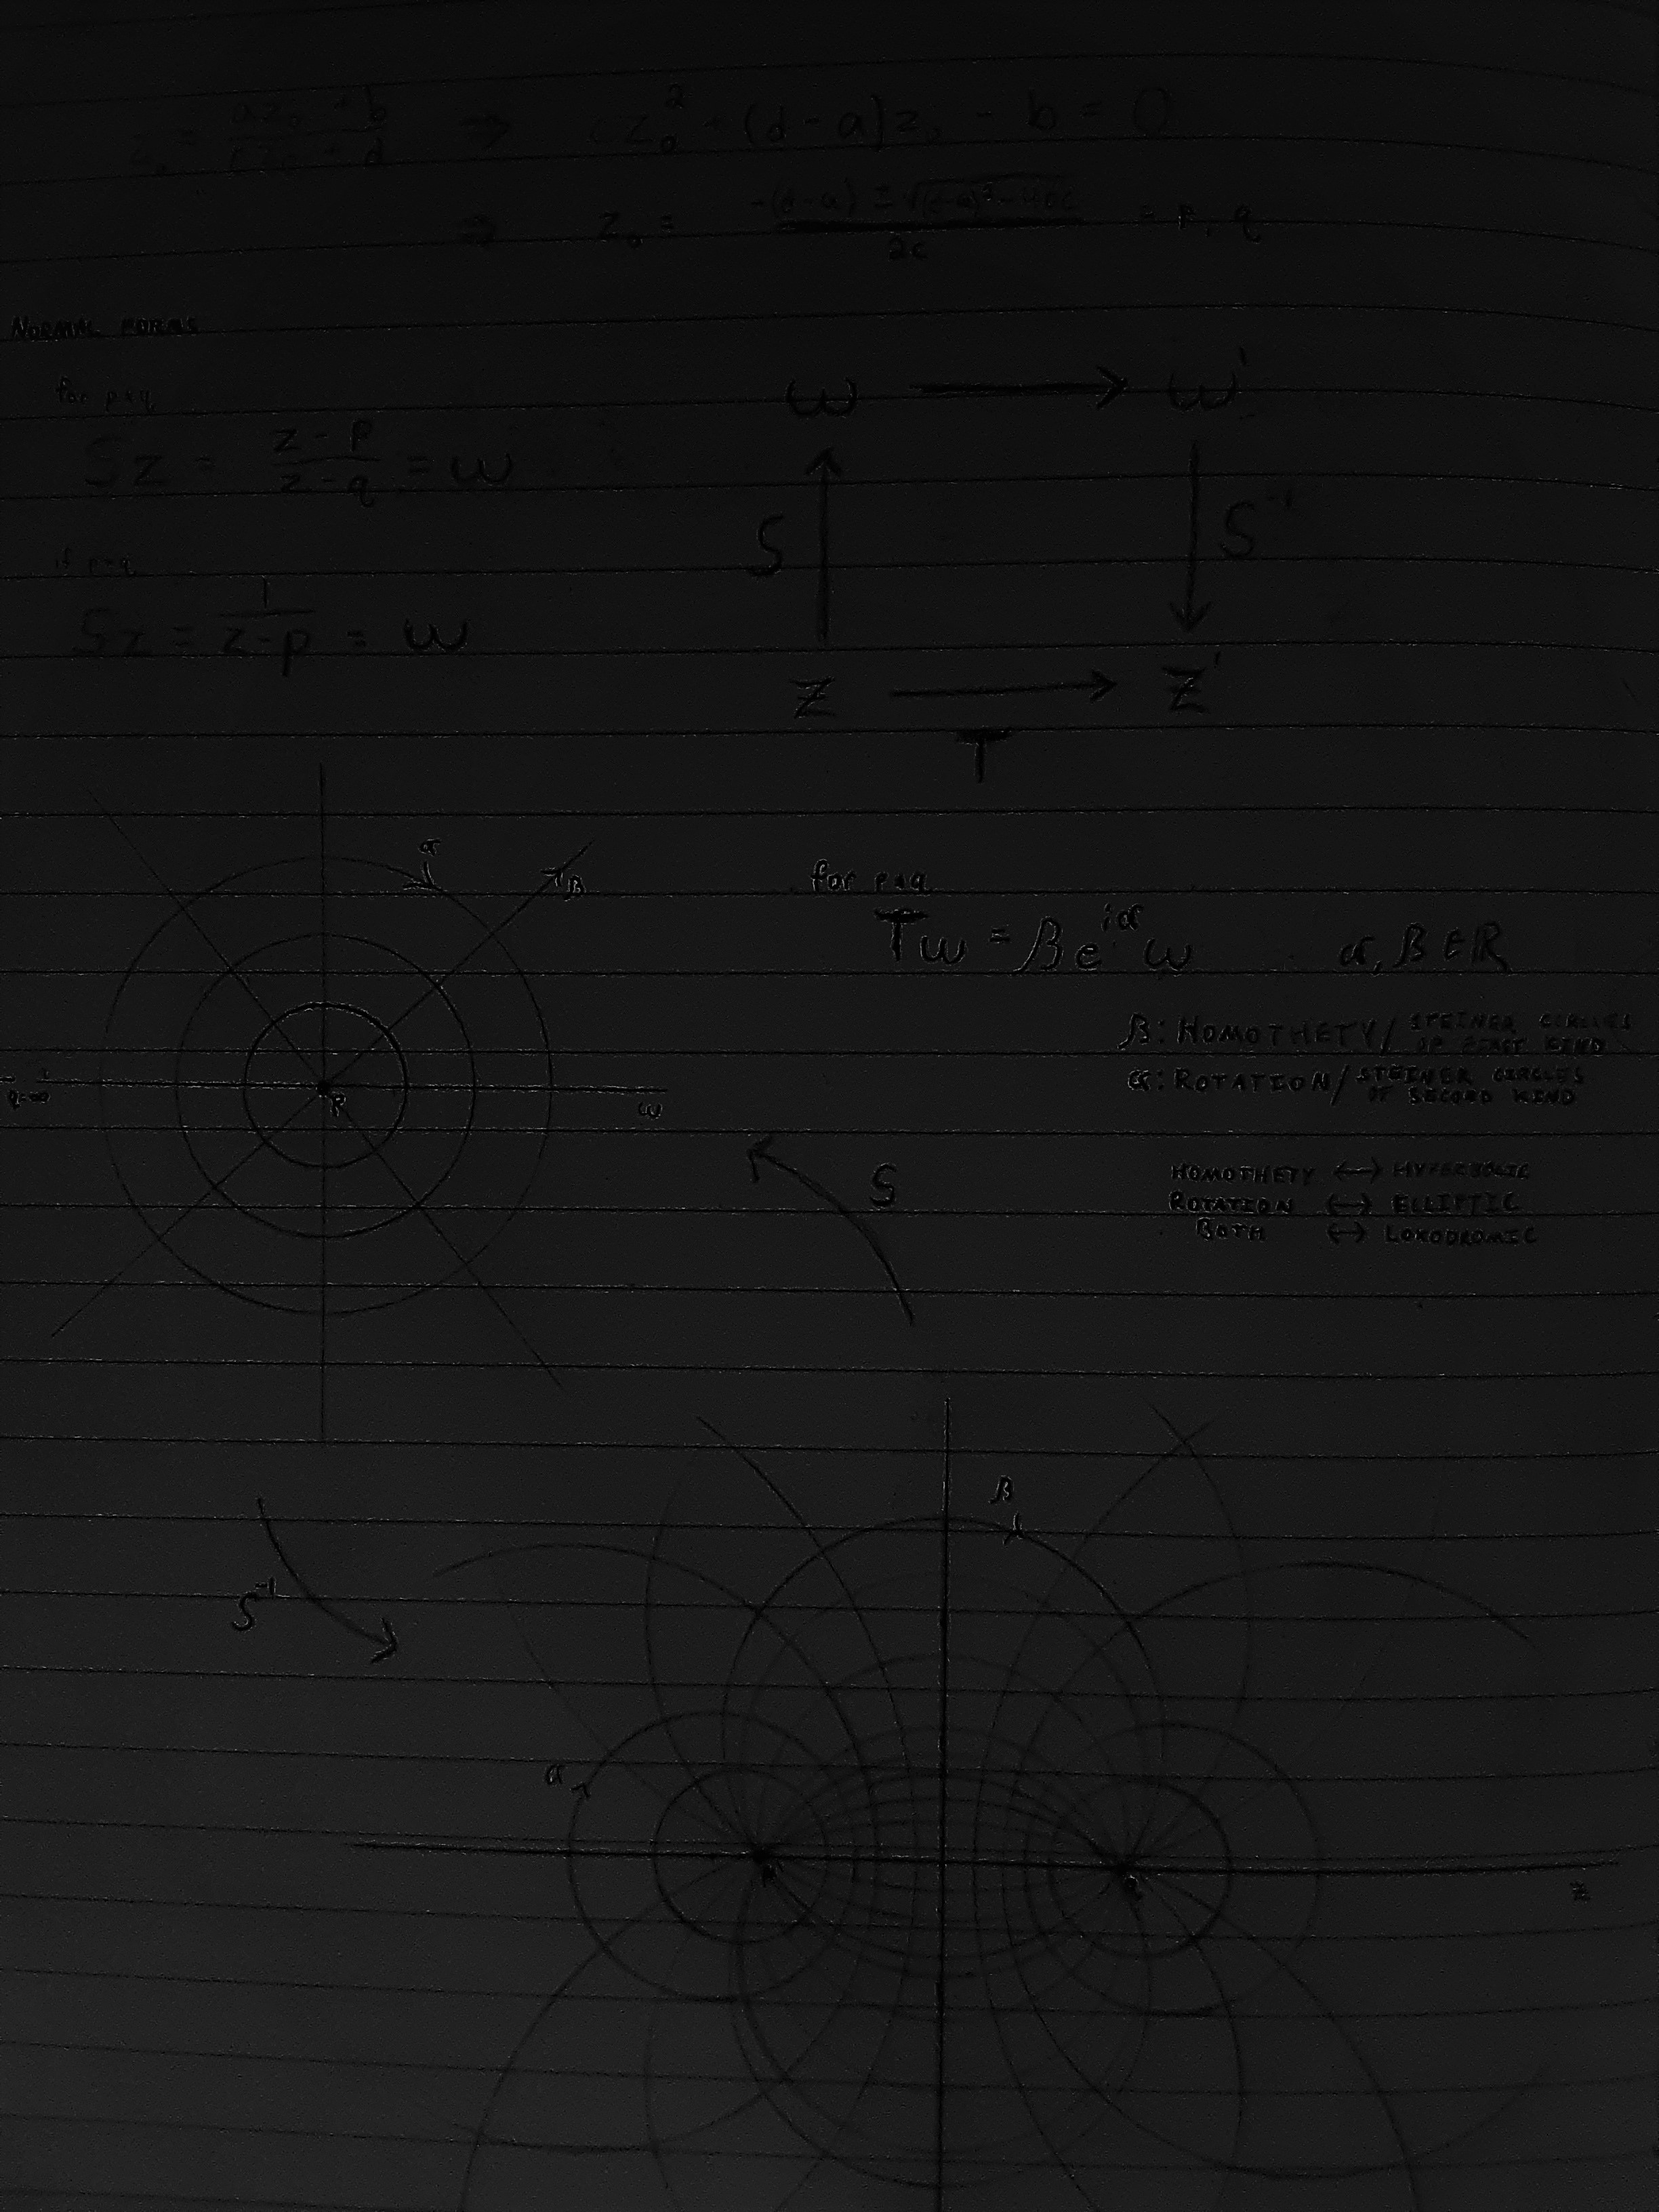 z₀ = (az₀ + b)/(cz₀ + d) ⇒ cz₀² + (d - a)z₀ - b = 0
⇒ z₀ = = p, q
NORMAL FORMS
for p≠q
Sz = (z - p)/(z - q) = ω
if p=q
Sz = 1/(z - p) = ω
ω → ω'
S S⁻¹
z → z'
T
α
β
for p≠q
Tω = βe^{iα}ω α, β ∈ ℝ
β: HOMOTHETY/ STEINER CIRCLES OF FIRST KIND
α: ROTATION/ STEINER CIRCLES OF SECOND KIND
q=∞
P
ω
S
HOMOTHETY ↔ HYPERBOLIC
ROTATION ↔ ELLIPTIC
BOTH ↔ LOXODROMIC
β
S⁻¹
α
P
Q
z